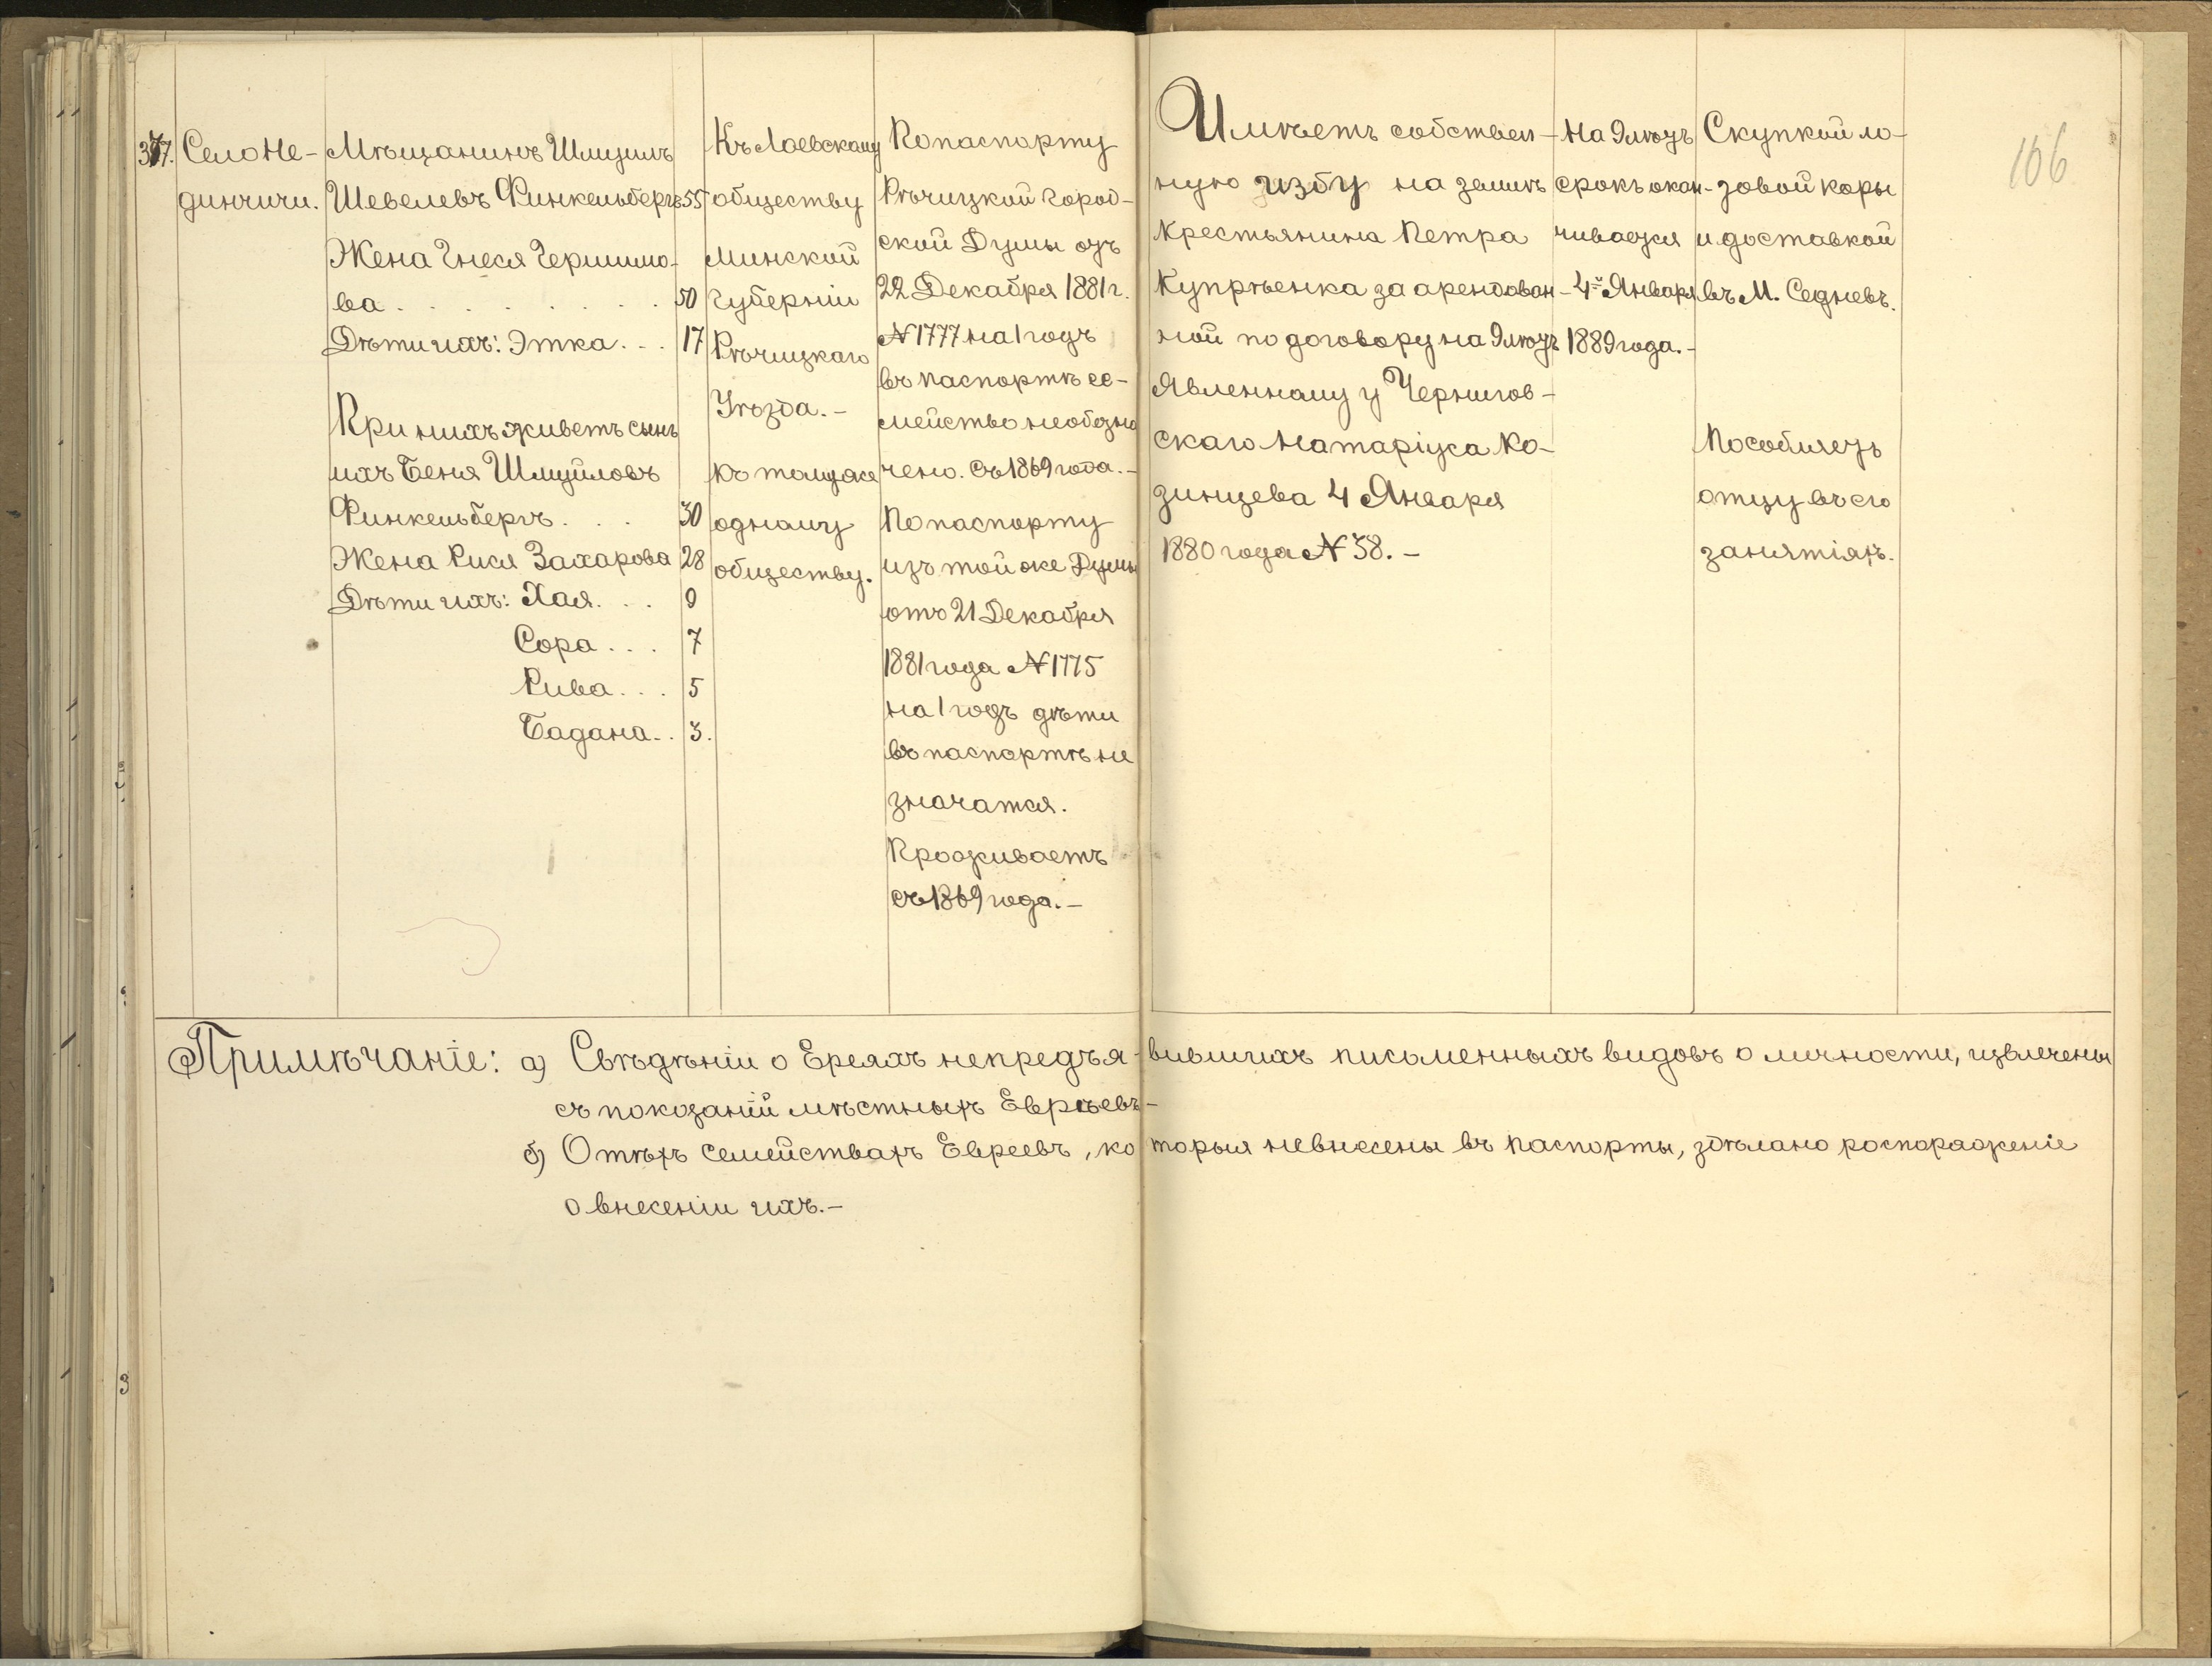 377.
Село Не-
динчичи.
Мѣщанинъ Шмуилъ
Шевелевъ Финкельбергъ 55
Жена Гнеся Гершимо-
ва . . . . . . . 50
Дѣти ихъ: Этка . . . 17
При нихъ живетъ сынъ
ихъ Беня Шмуйловъ
Финкельбергъ . . . 30
Жена Рися Захарова 28
Дѣти ихъ: Хая . . . 9
Сора . . . 7
Рива . . . 5
Бадана . . 3.
Къ Лоевскому
обществу
Минской
Губерніи
Рѣчицкаго
Уѣзда. –
къ томуже
одному
обществу.
По паспорту
Рѣчицкой город-
ской Думы отъ
22 Декабря 1881 г.
№ 1777 на 1 годъ
въ паспортѣ се-
мейство необозна
чено. Съ 1869 года. –
По паспорту
изъ той же Думы
отъ 21 Декабря
1881 года № 1775
на 1 годъ дѣти
въ паспортѣ не
значатся.
Проживаетъ
съ 1869 года. –
Имѣетъ собствен-
ную избу на землѣ
Крестьянина Петра
Купрѣенка за арендован-
ной по договору на 9 лѣтъ
Явленному у Чернигов-
скаго Натаріуса Ко-
зинцева 4 Января
1880 года № 38. –
На 9 лѣтъ
срокъ окан-
чивается
4й Января
1889 года. –
Скупкой ло-
зовой коры
и доставкой
въ М. Седневъ.
Пособляетъ
отцу въ его
занятіяхъ.
106
Примѣчаніе: а) Свѣдѣніи о Ереяхъ непредъя-вившихъ писменныхъ видовъ о личности, извлечены
съ показаній мѣстныхъ Еврѣевъ –
б) Отѣхъ семействахъ Евреевъ, ко торыя невнесены въ паспорты, здѣлано роспоряженіе
о внесеніи ихъ. –